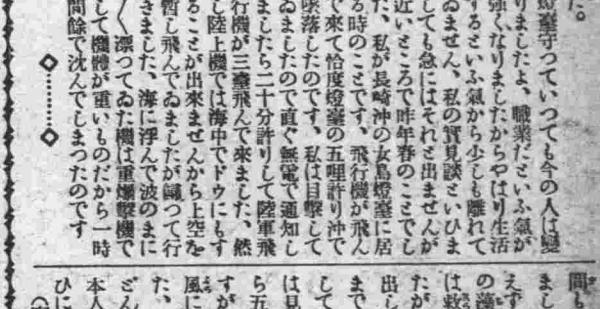 た。
燈臺守つていつても今の人は變
りましたよ、職業だといふ氣が
強くなりましたからやはり生活
するといふ氣から少しも離れて
ゐません、私の實見談といひま
しても急にはそれと出ませんが
近いところで昨年春のことでし
た、私が長崎沖の女島燈臺に居
る時のことです、飛行機が飛ん
で來て恰度燈臺の五哩許り沖で
墜落したのです、私は目擊して
ゐましたので直ぐ無電で通知し
ましたら二十分許りして陸軍飛
行機が三臺飛んで來ました、然
し陸上機では海中でドウにもす
ることが出來ませんから上空を
暫し飛んでゐましたが歸つて行
きました、海に浮んで波のまに
く漂つてゐた機は重爆擊機で
して機體が重いものだから一時
間餘で沈んでしまつたのです
間も
まし
えず
の藻
は救
たが
出し
まで
して
は見
ら五
すが
風に
た、
どん
本人
ひに